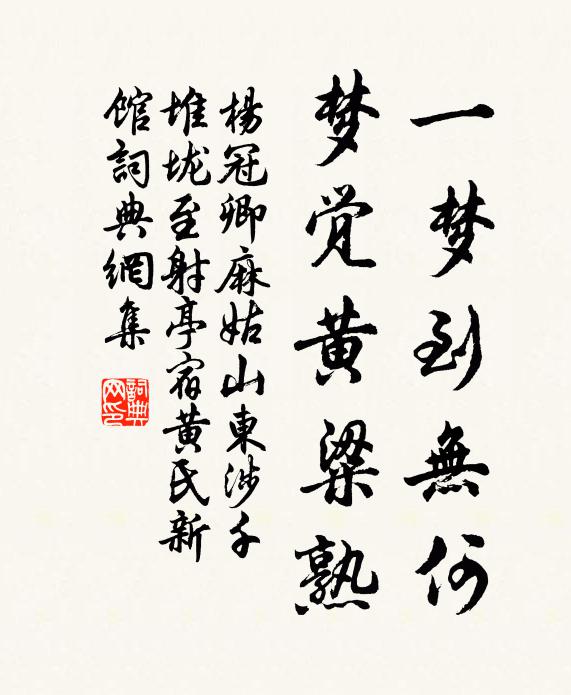 一梦到無何
梦觉黄粱熟
楊冠卿麻姑山東涉千
堆垅至射亭宿黄民新
馆詞典網集
詞典网印